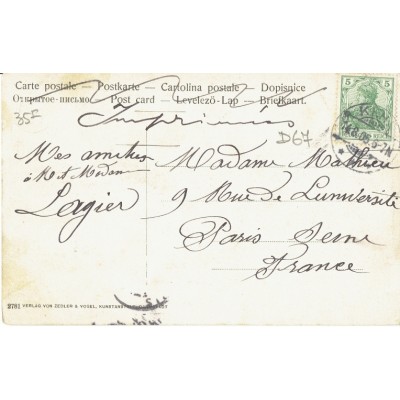 Carte postale – Postkarte – Cartolina postale – Dopisnice
Открытое-письмо. Post card – Levelező-Lap – Briefkaart.
35F
Imprimés
D67
5 5
Mes amitiés
à Mr et Madame
Lagier
Madame Mathieu
9 Rue de Lunwersité
Paris Seine
France
2781 VERLAG VON ZEDLER & VOGEL, KUNSTANSTALT